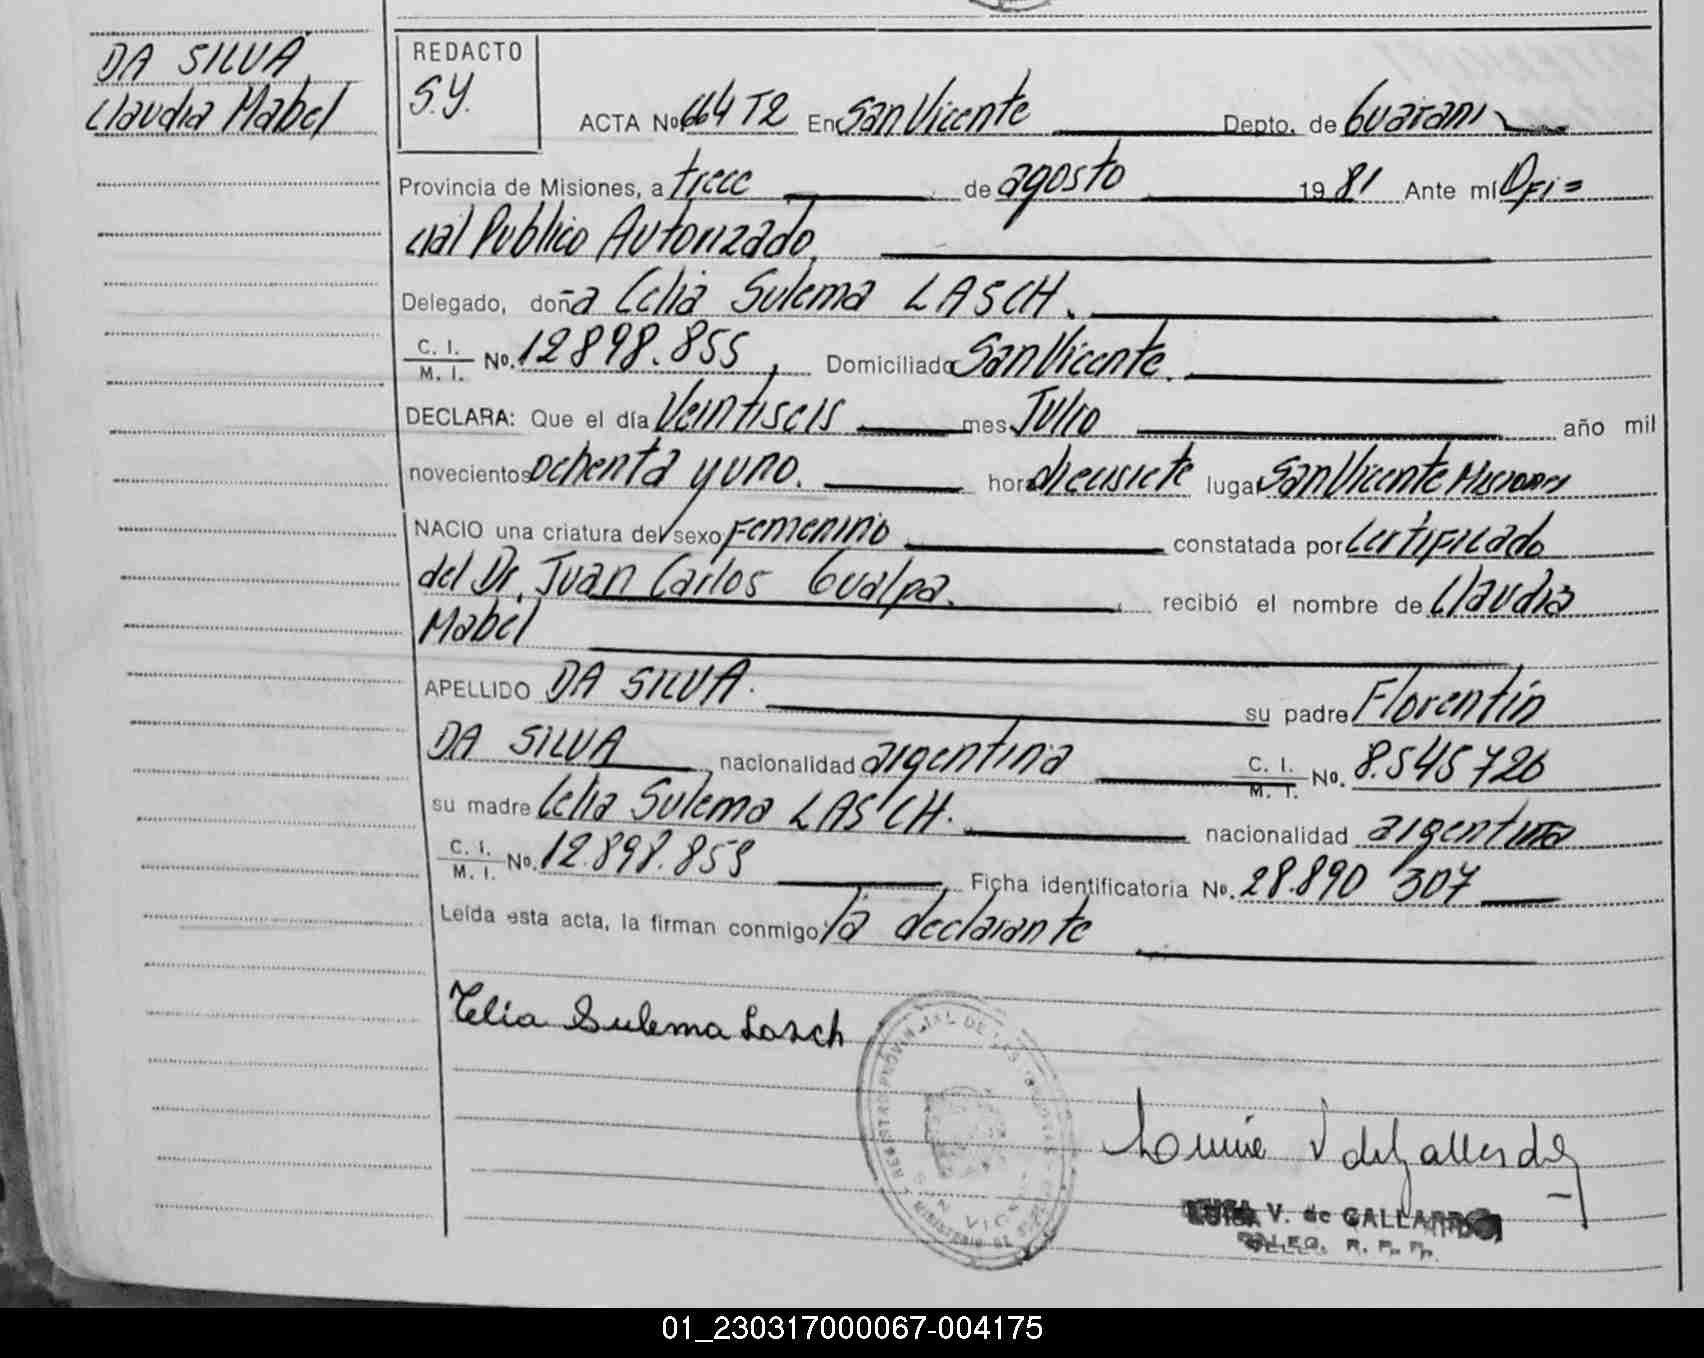 DA SILVA,
Claudia Mabel
REDACTO
S.Y.
ACTA No. 664 T2 En San Vicente Depto. de Guaraní
Provincia de Misiones, a trece de agosto 1981 Ante mí Ofi=
cial Publico Autorizado,
Delegado, doña Celia Sulema LASCH.
C. I. / M. I. No. 12898.855, Domiciliada San Vicente.
DECLARA: Que el día Veintiseis mes Julio año mil
novecientos ochenta y uno. hora diecisiete lugar San Vicente Misiones
NACIO una criatura del sexo Femenino constatada por Certificado
del Dr. Juan Carlos Gualpa. recibió el nombre de Claudia
Mabel
APELLIDO DA SILVA. su padre Florentín
DA SILVA, nacionalidad argentina C. I. / M. I. No. 8.545726
su madre Celia Sulema LASCH. nacionalidad argentina
C. I. / M. I. No. 12.898.855 Ficha identificatoria No. 28.890 307
Leída esta acta, la firman conmigo la declarante
Celia Sulema Lasch
REGISTRO PROVINCIAL DE LAS PERSONAS
SAN VICENTE
V. de Gallardo
LUISA V. de GALLARDO
DELEG. R. P. P.
01_230317000067-004175